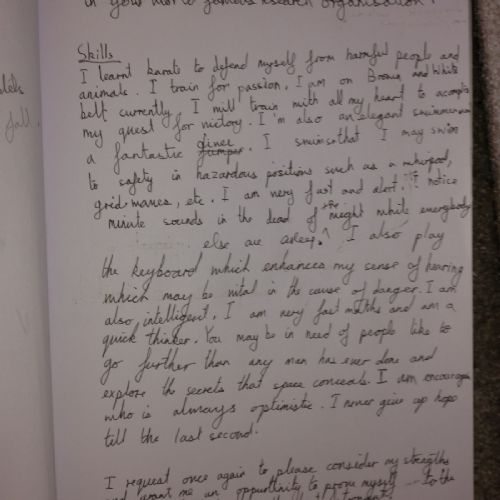 in your world famous research organisation.
Skills
I learnt karate to defend myself from harmful people and
animals. I train for passion. I am on Brown and White
belt currently. I will train with all my heart to accomplish
my quest for victory. I'm also an elegant swimmer and
a fantastic diver. I swim so that I may swim
to safety in hazardous positions such as a whirlpool,
etc. I am very fast and alert. I notice
minute sounds in the dead of the night while everybody
else are asleep. I also play
the keyboard which enhances my sense of hearing
which may be vital in the cause of danger. I am
also intelligent. I am very fast maths and am a
quick thinker. You may be in need of people like to
go further than any man has ever done and
explore the secrets that space conceals. I am
who is always optimistic. I never give up hope
till the last second.
I request once again to please consider my strengths
and grant me an opportunity to prove myself to the
fall.